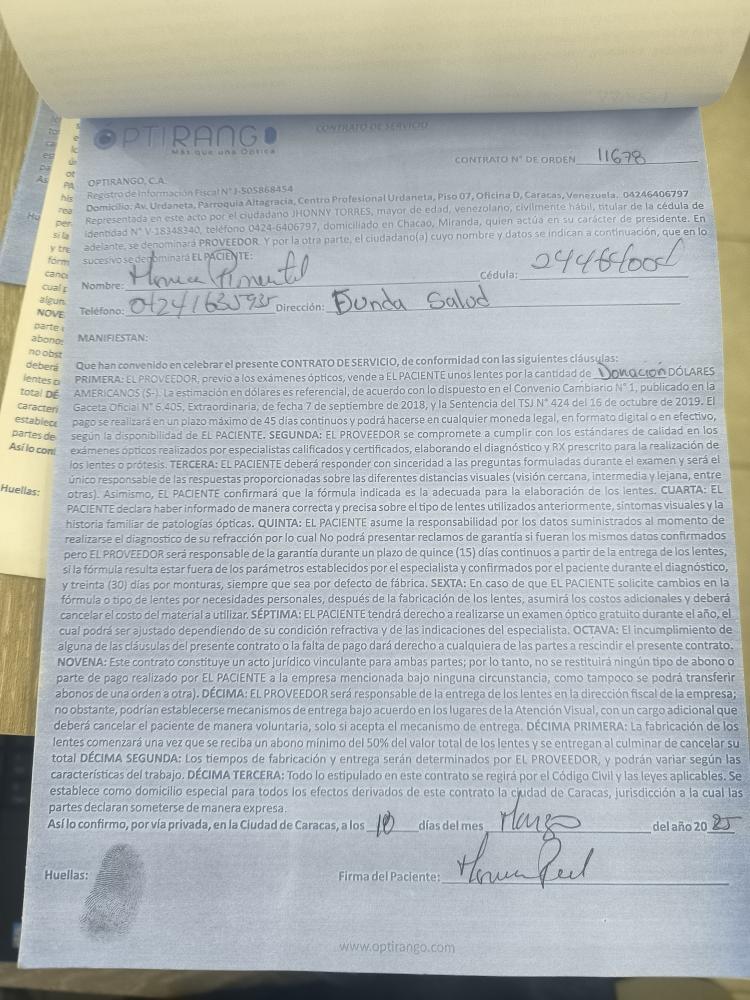 OPTIRANGO
Más que una Óptica
CONTRATO DE SERVICIO
CONTRATO N° DE ORDEN 11678
OPTIRANGO, C.A.
Registro de Información Fiscal N° J-505868454
Domicilio: Av. Urdaneta, Parroquia Altagracia, Centro Profesional Urdaneta, Piso 07, Oficina D, Caracas, Venezuela. 04246406797
Representada en este acto por el ciudadano JHONNY TORRES, mayor de edad, venezolano, civilmente hábil, titular de la cédula de
identidad N° V-18348340, teléfono 0424-6406797, domiciliado en Chacao, Miranda, quien actúa en su carácter de presidente. En
adelante, se denominará PROVEEDOR. Y por la otra parte, el ciudadano(a) cuyo nombre y datos se indican a continuación, que en lo
sucesivo se denominará EL PACIENTE:
Nombre: Monica Pimentel Cédula:
Teléfono: Dirección: Funda Salud
MANIFIESTAN:
Que han convenido en celebrar el presente CONTRATO DE SERVICIO, de conformidad con las siguientes cláusulas:
PRIMERA: EL PROVEEDOR, previo a los exámenes ópticos, vende a EL PACIENTE unos lentes por la cantidad de Donación DÓLARES
AMERICANOS (S-). La estimación en dólares es referencial, de acuerdo con lo dispuesto en el Convenio Cambiario N° 1, publicado en la
Gaceta Oficial N° 6.405, Extraordinaria, de fecha 7 de septiembre de 2018, y la Sentencia del TSJ N° 424 del 16 de octubre de 2019. El
pago se realizará en un plazo máximo de 45 días continuos y podrá hacerse en cualquier moneda legal, en formato digital o en efectivo,
según la disponibilidad de EL PACIENTE. SEGUNDA: EL PROVEEDOR se compromete a cumplir con los estándares de calidad en los
exámenes ópticos realizados por especialistas calificados y certificados, elaborando el diagnóstico y RX prescrito para la realización de
los lentes o prótesis. TERCERA: EL PACIENTE deberá responder con sinceridad a las preguntas formuladas durante el examen y será el
único responsable de las respuestas proporcionadas sobre las diferentes distancias visuales (visión cercana, intermedia y lejana, entre
otras). Asimismo, EL PACIENTE confirmará que la fórmula indicada es la adecuada para la elaboración de los lentes. CUARTA: EL
PACIENTE declara haber informado de manera correcta y precisa sobre el tipo de lentes utilizados anteriormente, síntomas visuales y la
historia familiar de patologías ópticas. QUINTA: EL PACIENTE asume la responsabilidad por los datos suministrados al momento de
realizarse el diagnostico de su refracción por lo cual No podrá presentar reclamos de garantía si fueran los mismos datos confirmados
pero EL PROVEEDOR será responsable de la garantía durante un plazo de quince (15) días continuos a partir de la entrega de los lentes,
si la fórmula resulta estar fuera de los parámetros establecidos por el especialista y confirmados por el paciente durante el diagnóstico,
y treinta (30) días por monturas, siempre que sea por defecto de fábrica. SEXTA: En caso de que EL PACIENTE solicite cambios en la
fórmula o tipo de lentes por necesidades personales, después de la fabricación de los lentes, asumirá los costos adicionales y deberá
cancelar el costo del material a utilizar. SÉPTIMA: EL PACIENTE tendrá derecho a realizarse un examen óptico gratuito durante el año, el
cual podrá ser ajustado dependiendo de su condición refractiva y de las indicaciones del especialista. OCTAVA: El incumplimiento de
alguna de las cláusulas del presente contrato o la falta de pago dará derecho a cualquiera de las partes a rescindir el presente contrato.
NOVENA: Este contrato constituye un acto jurídico vinculante para ambas partes; por lo tanto, no se restituirá ningún tipo de abono o
parte de pago realizado por EL PACIENTE a la empresa mencionada bajo ninguna circunstancia, como tampoco se podrá transferir
abonos de una orden a otra). DÉCIMA: EL PROVEEDOR será responsable de la entrega de los lentes en la dirección fiscal de la empresa;
no obstante, podrían establecerse mecanismos de entrega bajo acuerdo en los lugares de la Atención Visual, con un cargo adicional que
deberá cancelar el paciente de manera voluntaria, solo si acepta el mecanismo de entrega. DÉCIMA PRIMERA: La fabricación de los
lentes comenzará una vez que se reciba un abono mínimo del 50% del valor total de los lentes y se entregan al culminar de cancelar su
total DÉCIMA SEGUNDA: Los tiempos de fabricación y entrega serán determinados por EL PROVEEDOR, y podrán variar según las
características del trabajo. DÉCIMA TERCERA: Todo lo estipulado en este contrato se regirá por el Código Civil y las leyes aplicables. Se
establece como domicilio especial para todos los efectos derivados de este contrato la ciudad de Caracas, jurisdicción a la cual las
partes declaran someterse de manera expresa.
Así lo confirmo, por vía privada, en la Ciudad de Caracas, a los 10 días del mes Marzo del año 20 25
Huellas: Firma del Paciente:
www.optirango.com
Huellas: